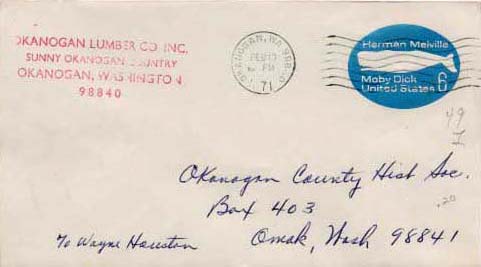 OKANOGAN LUMBER CO INC.
SUNNY OKANOGAN COUNTRY
OKANOGAN, WASHINGTON
98840
OKANOGAN, WA 988
FEB
PM
71
Herman Melville
Moby Dick
United States 6
49
.20
Okanogan County Hist Soc.
Box 403
Omak, Wash 98841
% Wayne Houston